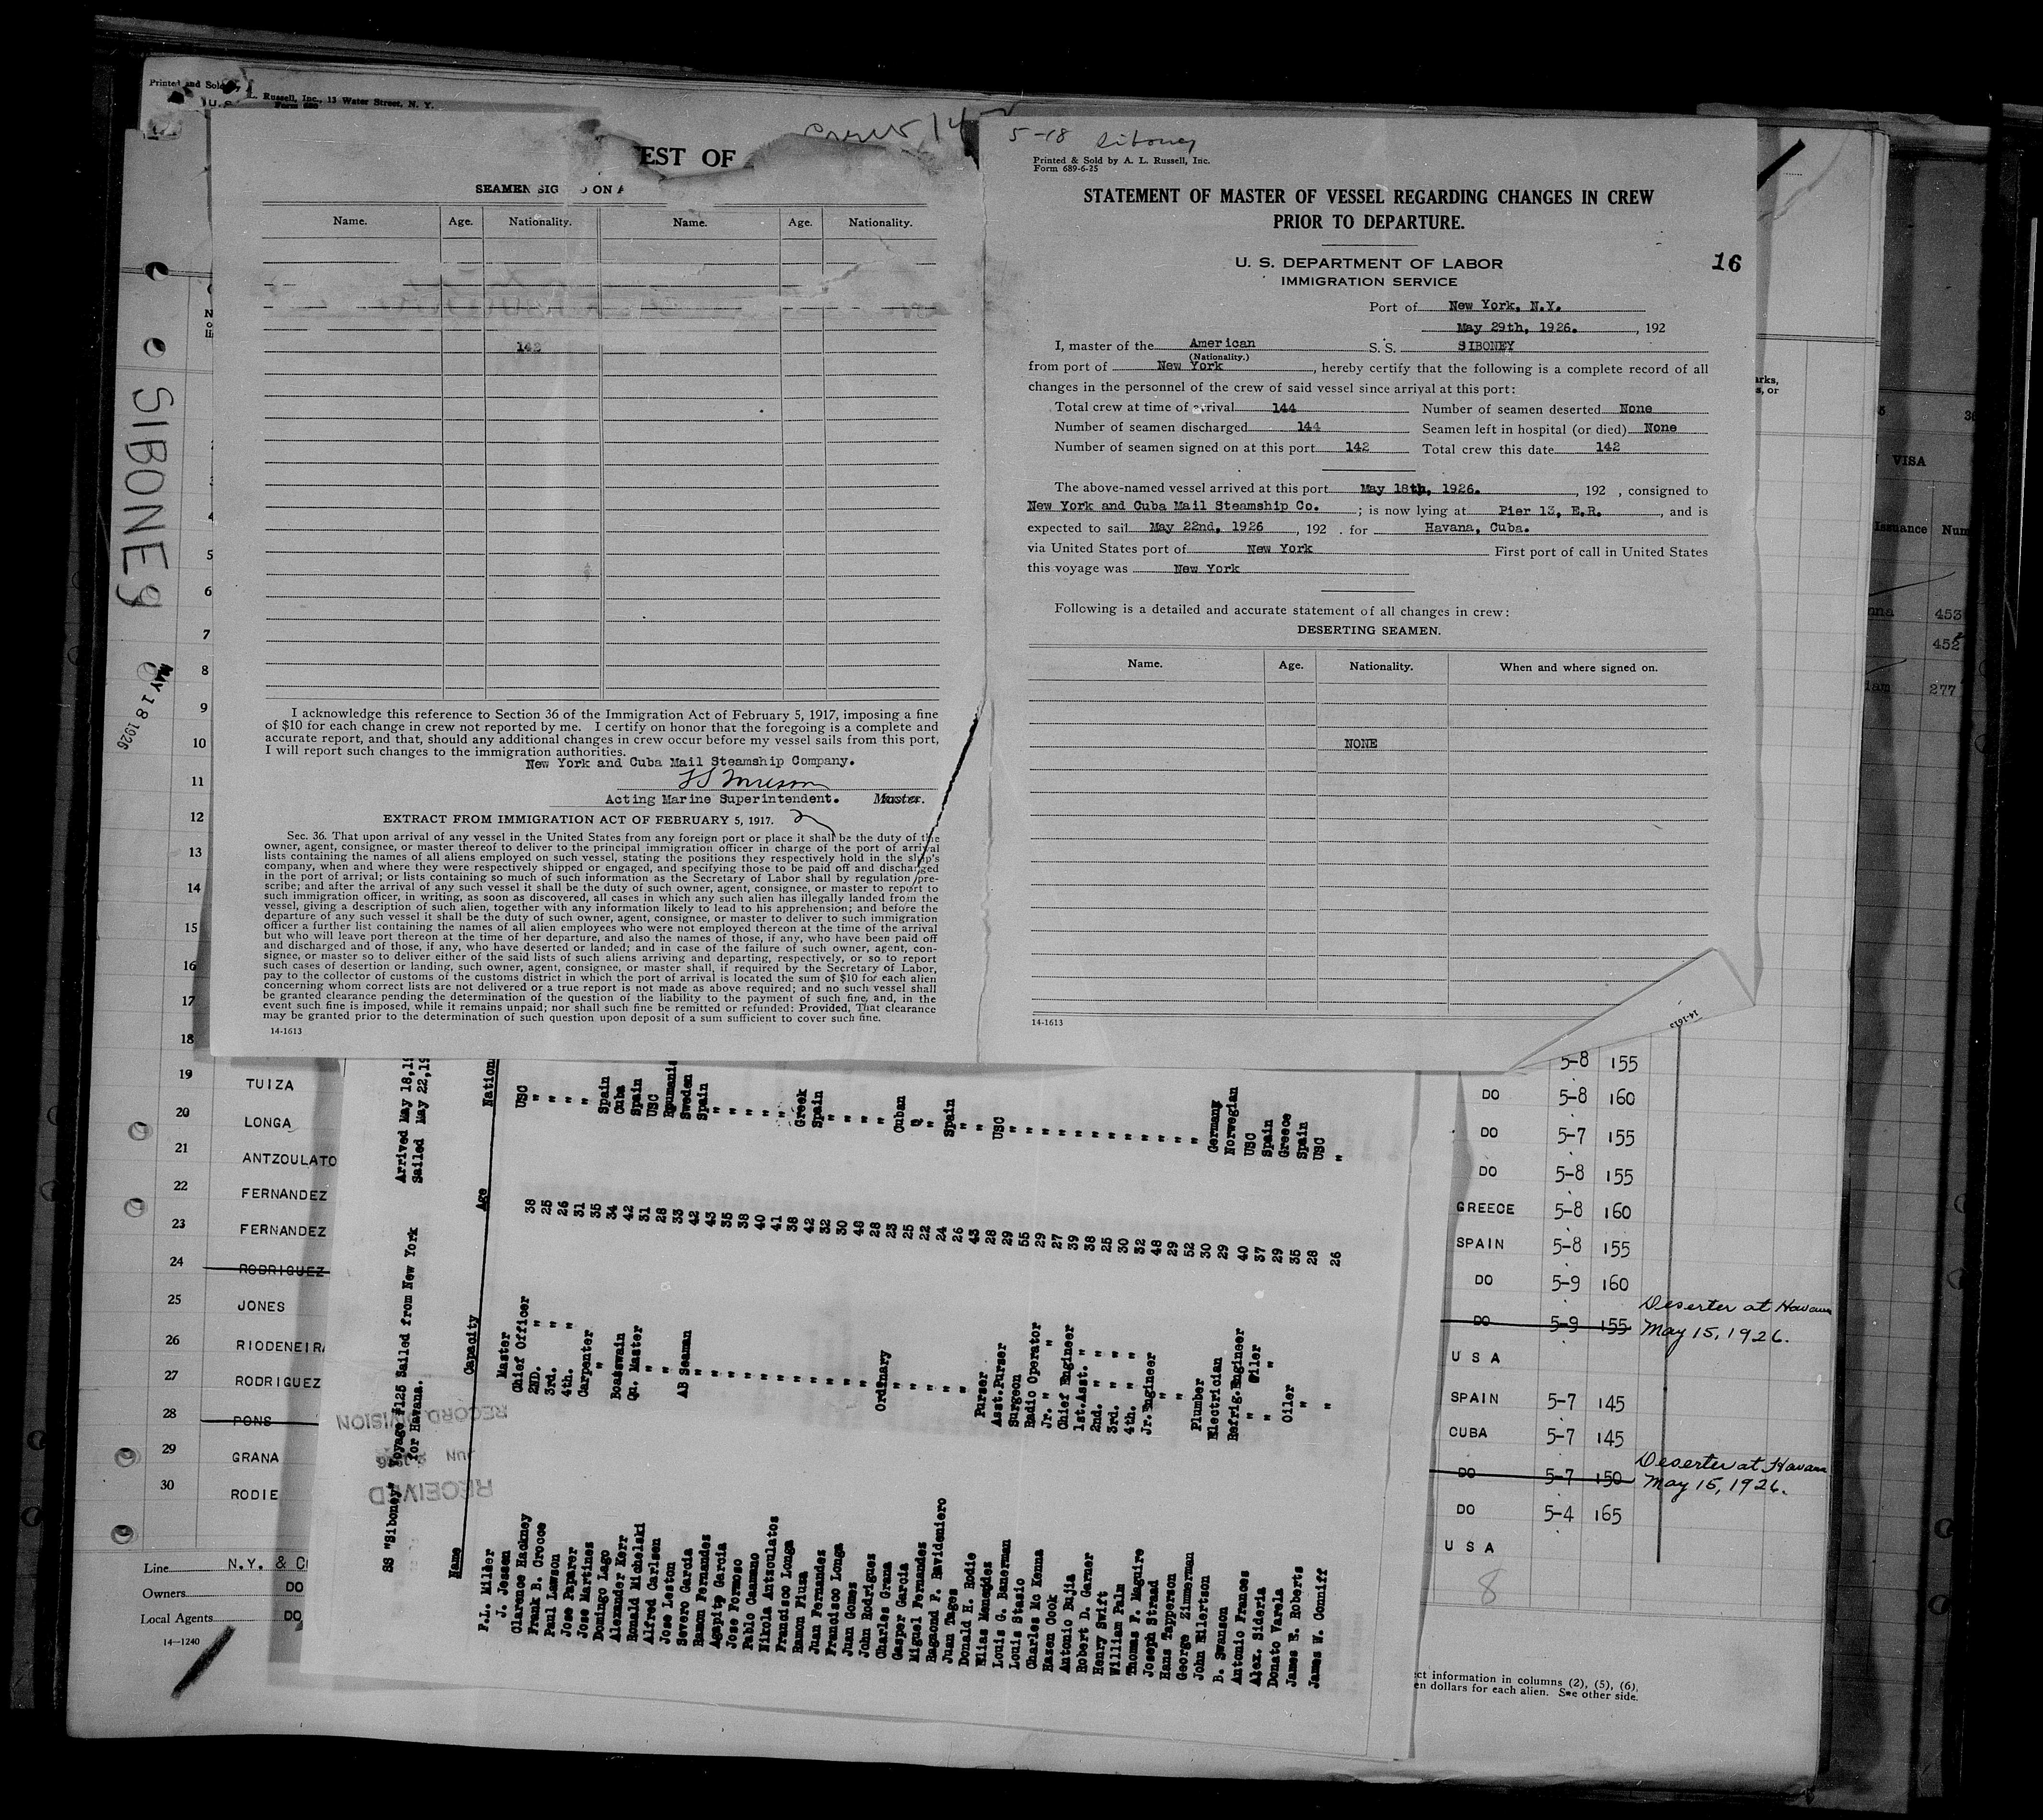 Printed and Sold
L. Russell, Inc., 13 Water Street, N. Y.
U.S
EST OF
SEAMEN SIG ON A
Name. Age. Nationality. Name. Age. Nationality.
142
I acknowledge this reference to Section 36 of the Immigration Act of February 5, 1917, imposing a fine
of $10 for each change in crew not reported by me. I certify on honor that the foregoing is a complete and
accurate report, and that, should any additional changes in crew occur before my vessel sails from this port,
I will report such changes to the immigration authorities.
New York and Cuba Mail Steamship Company.
Acting Marine Superintendent. Master.
EXTRACT FROM IMMIGRATION ACT OF FEBRUARY 5, 1917.
Sec. 36. That upon arrival of any vessel in the United States from any foreign port or place it shall be the duty of the
owner, agent, consignee, or master thereof to deliver to the principal immigration officer in charge of the port of arrival
lists containing the names of all aliens employed on such vessel, stating the positions they respectively hold in the ship's
company, when and where they were respectively shipped or engaged, and specifying those to be paid off and discharged
in the port of arrival; or lists containing so much of such information as the Secretary of Labor shall by regulation pre-
scribe; and after the arrival of any such vessel it shall be the duty of such owner, agent, consignee, or master to report to
such immigration officer, in writing, as soon as discovered, all cases in which any such alien has illegally landed from the
vessel, giving a description of such alien, together with any information likely to lead to his apprehension; and before the
departure of any such vessel it shall be the duty of such owner, agent, consignee, or master to deliver to such immigration
officer a further list containing the names of all alien employees who were not employed thereon at the time of the arrival
but who will leave port thereon at the time of her departure, and also the names of those, if any, who have been paid off
and discharged and of those, if any, who have deserted or landed; and in case of the failure of such owner, agent, con-
signee, or master so to deliver either of the said lists of such aliens arriving and departing, respectively, or so to report
such cases of desertion or landing, such owner, agent, consignee, or master shall, if required by the Secretary of Labor,
pay to the collector of customs of the customs district in which the port of arrival is located the sum of $10 for each alien
concerning whom correct lists are not delivered or a true report is not made as above required; and no such vessel shall
be granted clearance pending the determination of the question of the liability to the payment of such fine, and, in the
event such fine is imposed, while it remains unpaid; nor shall such fine be remitted or refunded: Provided, That clearance
may be granted prior to the determination of such question upon deposit of a sum sufficient to cover such fine.
14-1613
5-18 Siboney
Printed & Sold by A. L. Russell, Inc.
Form 689-6-25
STATEMENT OF MASTER OF VESSEL REGARDING CHANGES IN CREW
PRIOR TO DEPARTURE.
U. S. DEPARTMENT OF LABOR
IMMIGRATION SERVICE
16
Port of New York, N.Y.
May 29th, 1926. , 192
I, master of the American S. S. SIBONEY
(Nationality.)
from port of New York , hereby certify that the following is a complete record of all
changes in the personnel of the crew of said vessel since arrival at this port:
Total crew at time of arrival 144 Number of seamen deserted None
Number of seamen discharged 144 Seamen left in hospital (or died) None
Number of seamen signed on at this port 142 Total crew this date 142
The above-named vessel arrived at this port May 18th, 1926. , 192 , consigned to
New York and Cuba Mail Steamship Co. ; is now lying at Pier 13, E.R. , and is
expected to sail May 22nd, 1926 , 192 . for Havana, Cuba.
via United States port of New York First port of call in United States
this voyage was New York
Following is a detailed and accurate statement of all changes in crew:
DESERTING SEAMEN.
Name. Age. Nationality. When and where signed on.
NONE
14-1613
14-1613
SIBONEY
MAY 18 1926
5
6
7
8
9
10
11
12
13
14
15
16
17
18
19 TUIZA
20 LONGA
21 ANTZOULATO
22 FERNANDEZ
23 FERNANDEZ
24 RODRIGUEZ
25 JONES
26 RIODENEIRA
27 RODRIGUEZ
28 PONS
29 GRANA
30 RODIE
Line N.Y. & C
Owners DO
Local Agents DO
14-1240
arks,
s, or
VISA
Issuance Num
453
452
277
5-8 155
DO 5-8 160
DO 5-7 155
DO 5-8 155
GREECE 5-8 160
SPAIN 5-8 155
DO 5-9 160
DO 5-9 155 Deserter at Havana
May 15, 1926.
U S A
SPAIN 5-7 145
CUBA 5-7 145
DO 5-7 150 Deserter at Havana
May 15, 1926.
DO 5-4 165
U S A
8
ct information in columns (2), (5), (6),
en dollars for each alien. See other side.
SS "Siboney" Voyage #125 Sailed from New York Arrived May 18,19
for Havana. Sailed May 22,19
RECEIVED
JUN
RECORD DIVISION
Name Capacity Age Nation
F.L. Miller Master 38 USC
J. Jessen Chief Officer 25 "
Clarence Hackney 2ND. " 26 "
Frank B. Crocce 3rd. " 31 "
Paul Lawson 4th. " 35 "
Jose Paparer Carpenter 34 Spain
Jose Martines " 42 Cuba
Domingo Lago Boatswain 31 Spain
Alexander Kerr Qu. Master 28 USC
Ronald Michelski " 33 Roumani
Alfred Carlsen " 42 Sweden
Jose Leston AB Seaman 43 Spain
Severo Garcia " 35 "
Ramon Fernandes " 38 "
Agapito Garcia " 40 "
Jose Formoso " 41 "
Pablo Caamano " 38 "
Nikola Antsoulatos " 42 Greek
Francisco Longa " 32 Spain
Ramon Piusa " 30 "
Juan Fernandes " 48 "
Francisco Longa " 28 "
Juan Gomes Ordinary 23 "
John Rodrigues " 25 Cuban
Charles Grana " 22 "
Gasper Garcia " 24 "
Miguel Fernandes " 26 Spain
Ragmond F. Ravideniero " 43 "
Juan Tages Purser 28 "
Donald H. Rodie Asst.Purser 29 USC
Elias Menendes Surgeon 55 "
Louis G. Banerman Radio Operator 29 "
Louis Stasio Jr. " " 27 "
Charles Mc Kenna Chief Engineer 39 "
Hazen Cook 1st.Asst. " 38 "
Antonio Bujia 2nd. " " 25 "
Robert D. Garner 3rd. " " 30 "
Henry Swift 4th. " " 32 "
William Palm Jr. Engineer 48 "
Thomas F. Maguire " 29 "
Joseph Straad " 52 "
Hans Tapperson Plumber 30 Germany
George Zimmerman Electrician 29 Norwegian
John Eilertson Refrig.Engineer 40 USC
B. Swanson " Oiler 37 Spain
Antonio Frances " " 29 Greece
Alex. Sideria Oiler 35 Spain
Donato Varela " 28 USC
James E. Roberts
James W. Conniff " 26 "